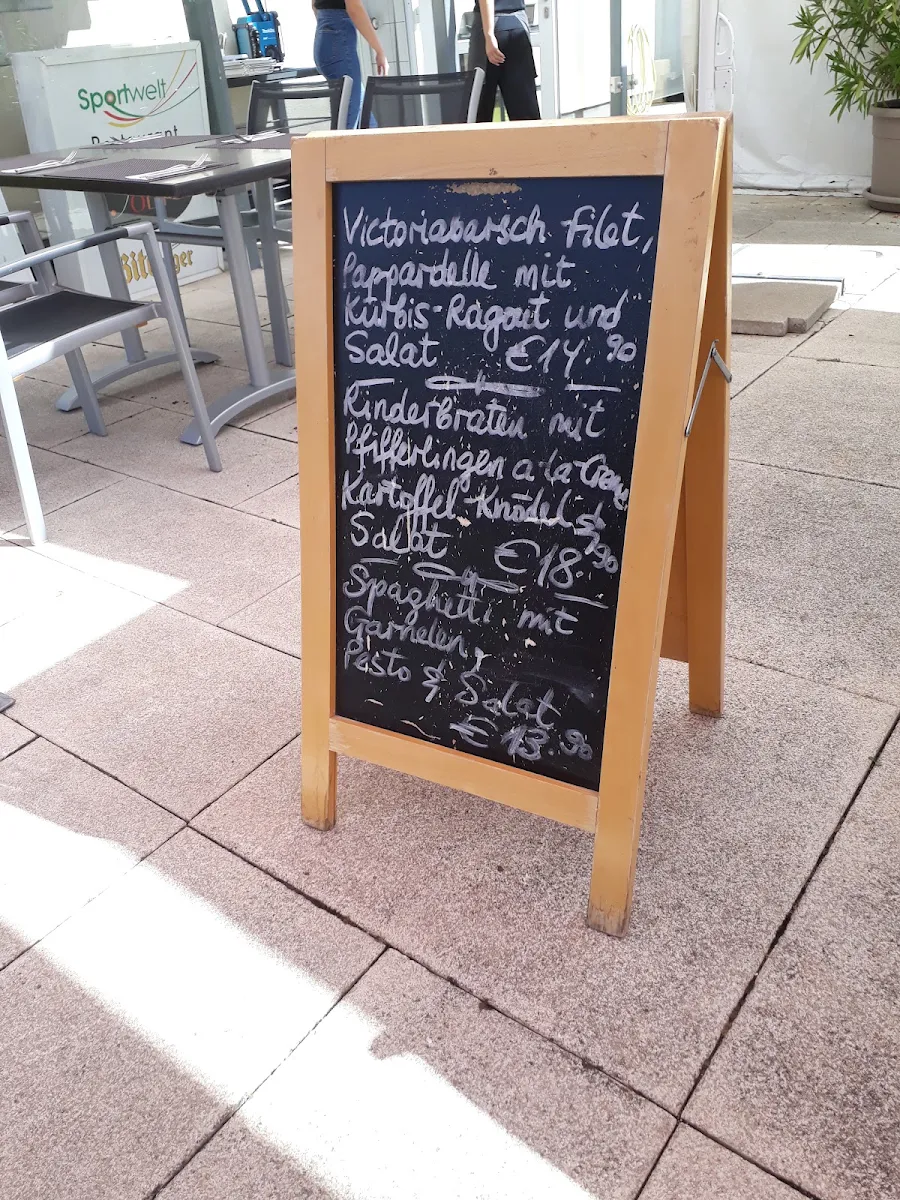 Sportwelt
Restaurant
Bitburger
Victoriabarsch Filet,
Pappardelle mit
Kürbis-Ragout und
Salat €14.90
Rinderbraten mit
Pfifferlingen a-la-Creme
Kartoffel-Knödel
Salat €18.90
Spaghetti mit
Garnelen,
Pesto & Salat
€ 13.90